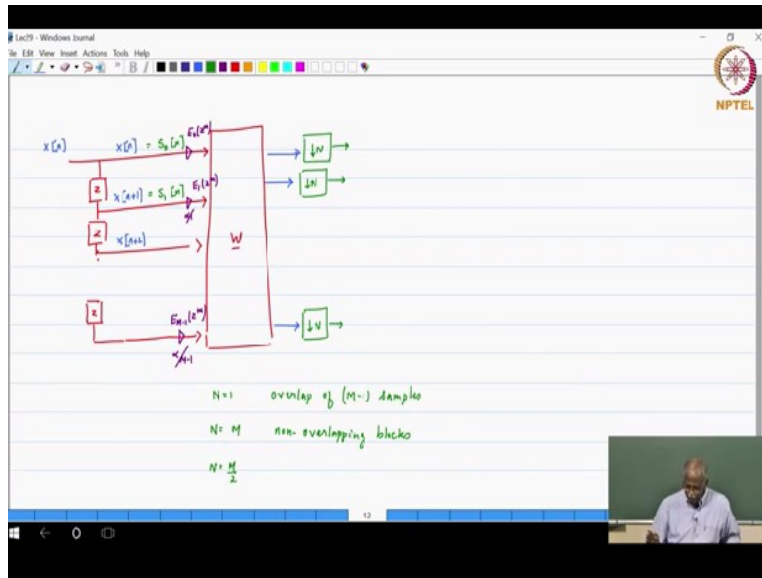 Lec19 - Windows Journal
File Edit View Insert Actions Tools Help
NPTEL
x[n] x[n] = S₀[n] E₀(z^M)
z x[n+1] = S₁[n] E₁(z^M)
z x[n+2]
W
z E_{M-1}(z^M)
↓N
↓N
↓N
N=1 overlap of (M-1) samples
N= M non-overlapping blocks
N= M/2
12